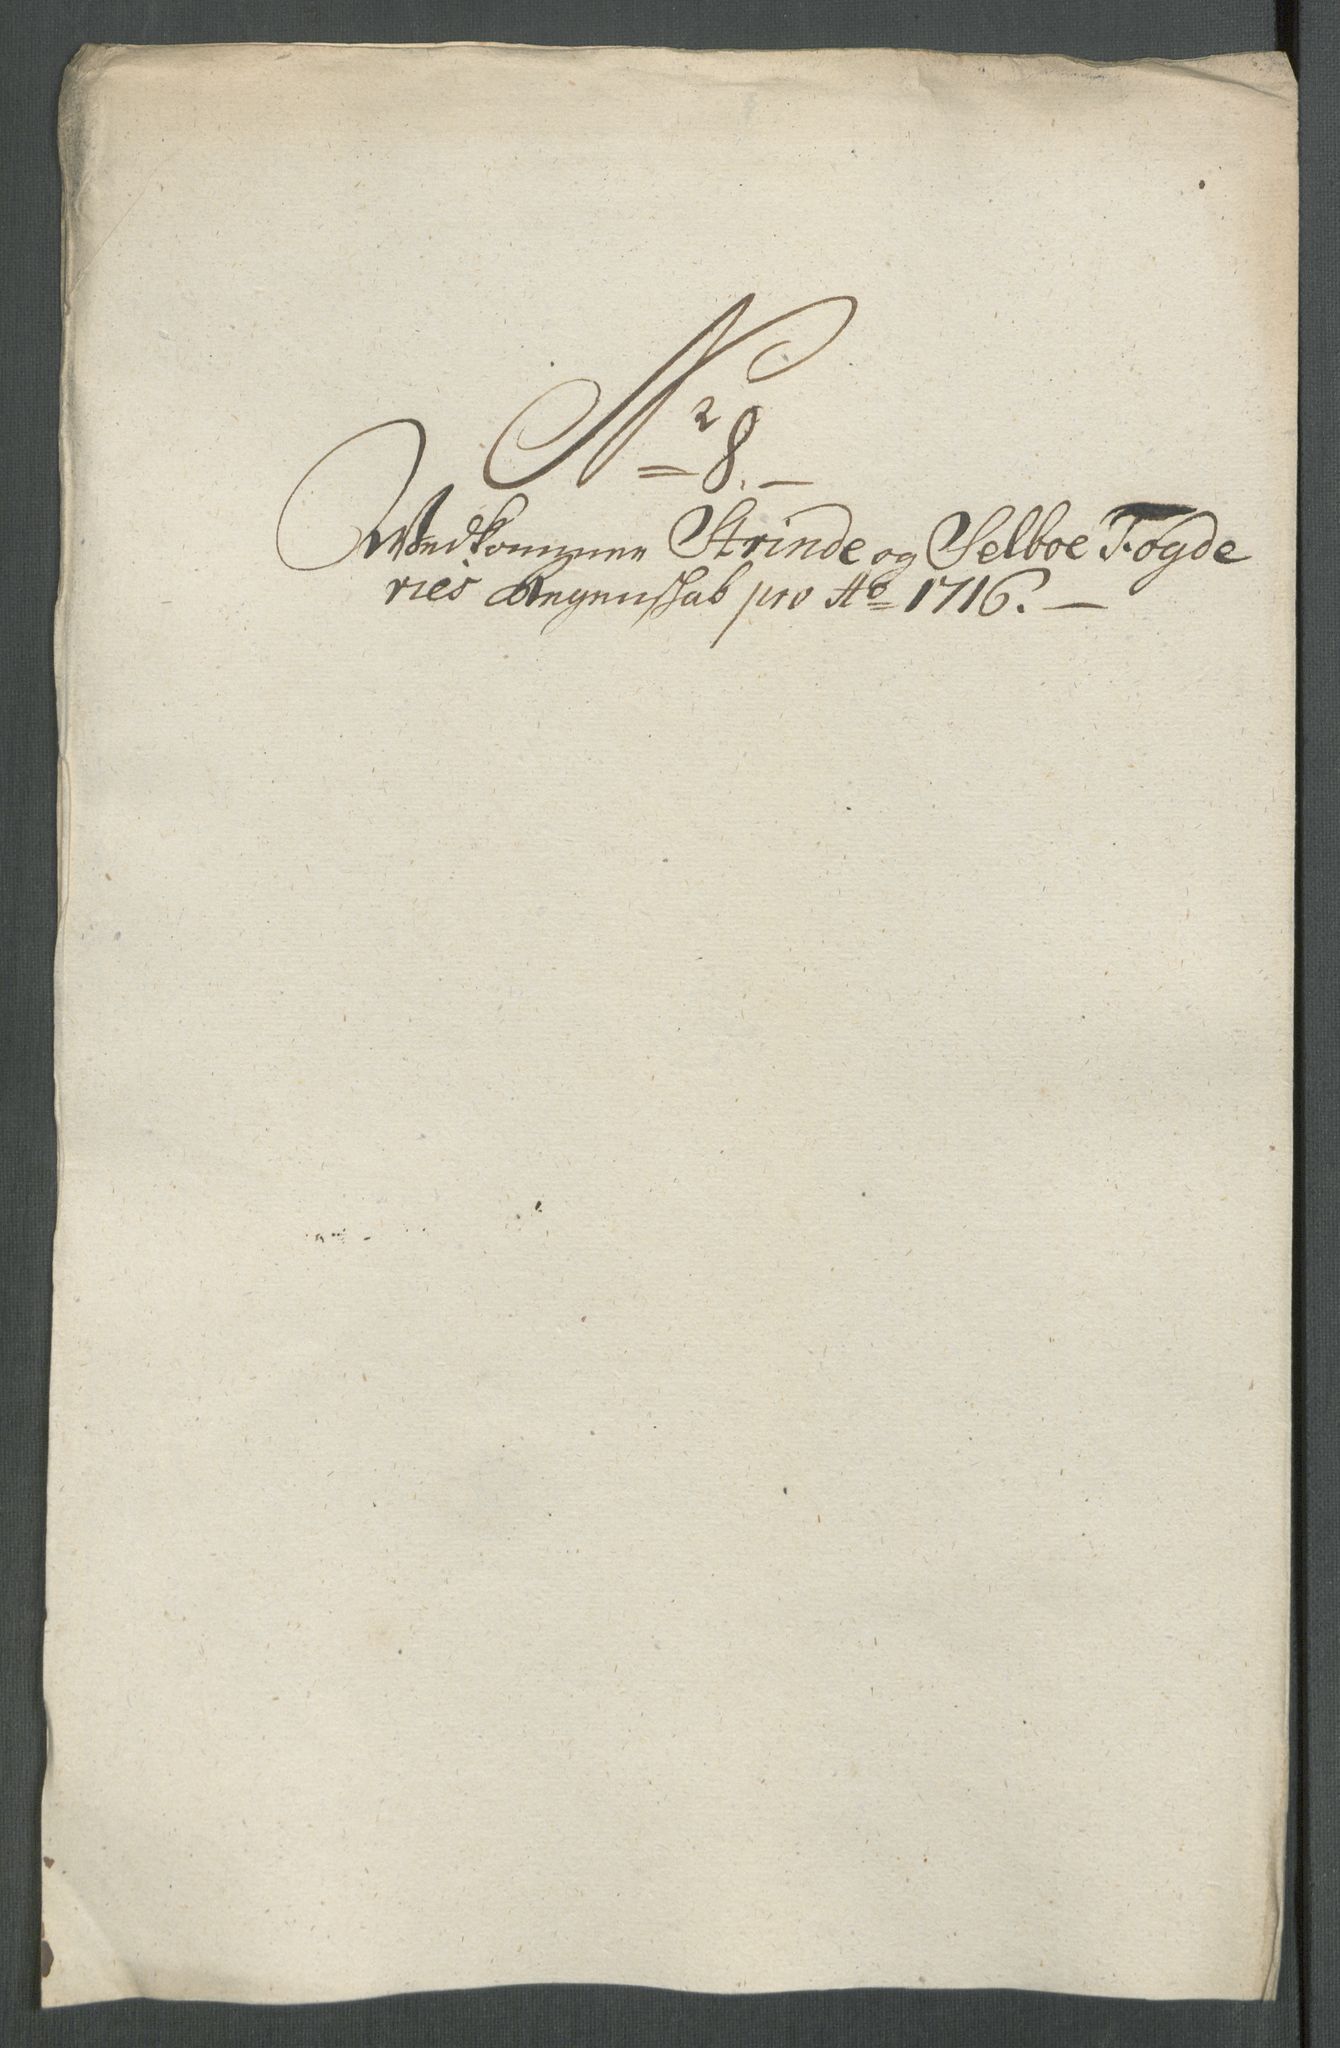 No 8.
Wedkommer Strinde og Selboe Fogde
ries Regenskab pro Ao 1716.